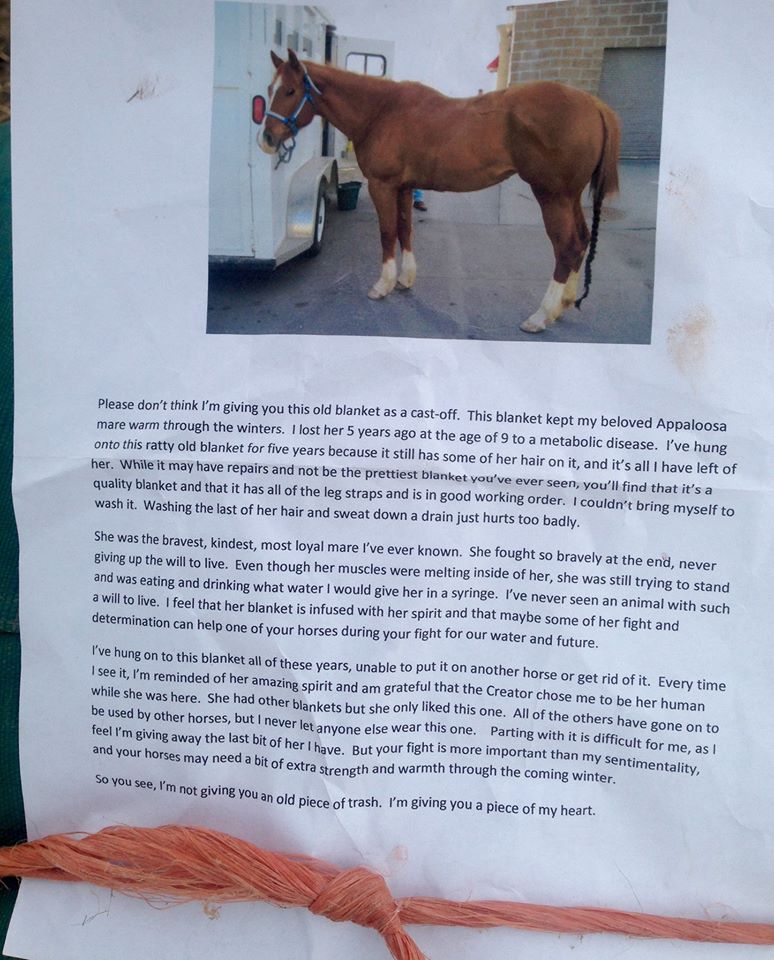 Please don't think I'm giving you this old blanket as a cast-off.  This blanket kept my beloved Appaloosa
mare warm through the winters.  I lost her 5 years ago at the age of 9 to a metabolic disease.  I've hung
onto this ratty old blanket for five years because it still has some of her hair on it, and it's all I have left of
her.  While it may have repairs and not be the prettiest blanket you've ever seen, you'll find that it's a
quality blanket and that it has all of the leg straps and is in good working order.  I couldn't bring myself to
wash it.  Washing the last of her hair and sweat down a drain just hurts too badly.
She was the bravest, kindest, most loyal mare I've ever known.  She fought so bravely at the end, never
giving up the will to live.  Even though her muscles were melting inside of her, she was still trying to stand
and was eating and drinking what water I would give her in a syringe.  I've never seen an animal with such
a will to live.  I feel that her blanket is infused with her spirit and that maybe some of her fight and
determination can help one of your horses during your fight for our water and future.
I've hung on to this blanket all of these years, unable to put it on another horse or get rid of it.  Every time
I see it, I'm reminded of her amazing spirit and am grateful that the Creator chose me to be her human
while she was here.  She had other blankets but she only liked this one.  All of the others have gone on to
be used by other horses, but I never let anyone else wear this one.   Parting with it is difficult for me, as I
feel I'm giving away the last bit of her I have.  But your fight is more important than my sentimentality,
and your horses may need a bit of extra strength and warmth through the coming winter.
So you see, I'm not giving you an old piece of trash.  I'm giving you a piece of my heart.